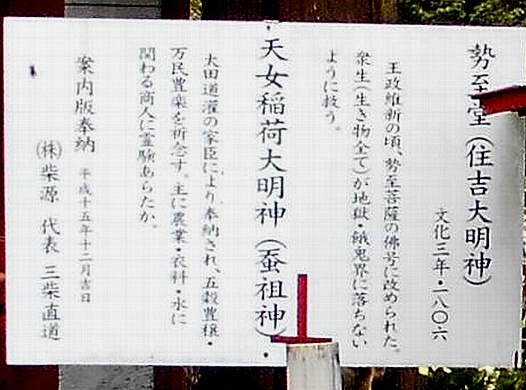 勢至堂(住吉大明神)
文化三年・一八〇六
王政維新の頃、勢至菩薩の佛号に改められた。
衆生(生き物全て)が地獄・餓鬼界に落ちない
ように救う。
天女稲荷大明神(蚕祖神)
太田道灌の家臣により奉納され、五穀豊穣・
万民豊楽を祈念す。主に農業・衣料・水に
関わる商人に霊験あらたか。
案内版奉納 平成十五年十二月吉日
㈱柴源 代表 三柴直道